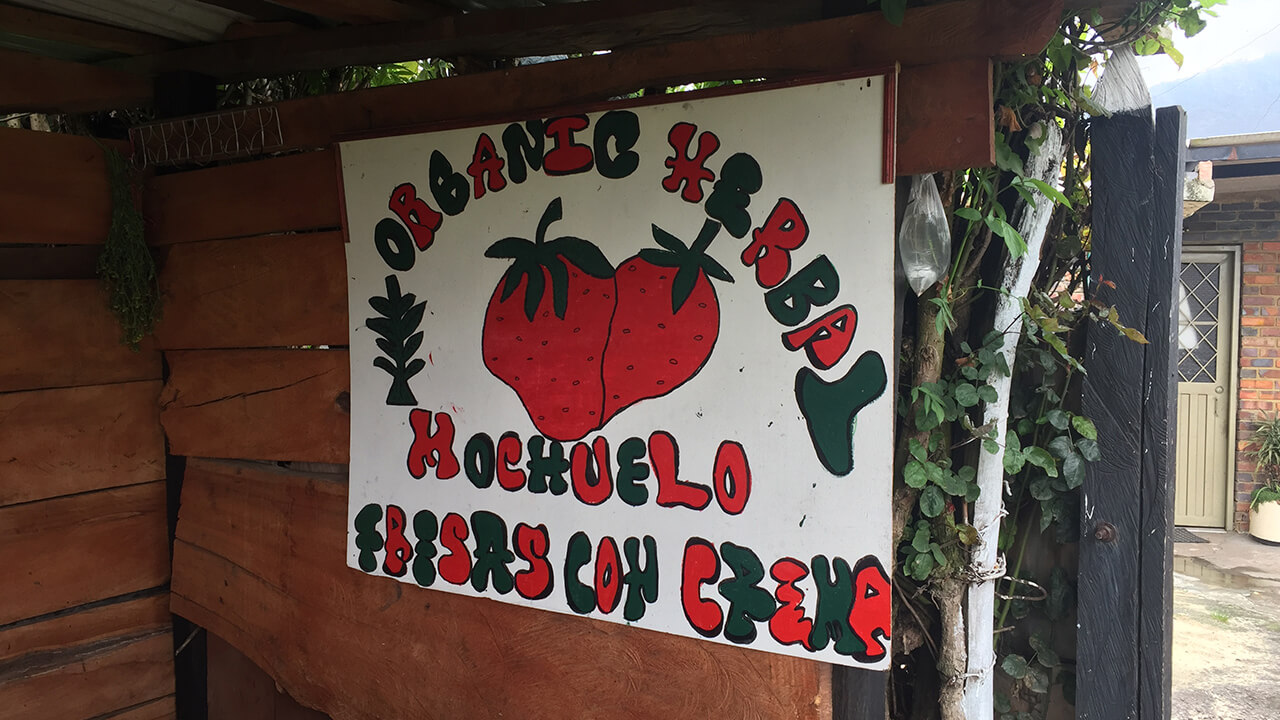 ORGANIC HERBAY
MOCHUELO
FRESAS CON CREMA